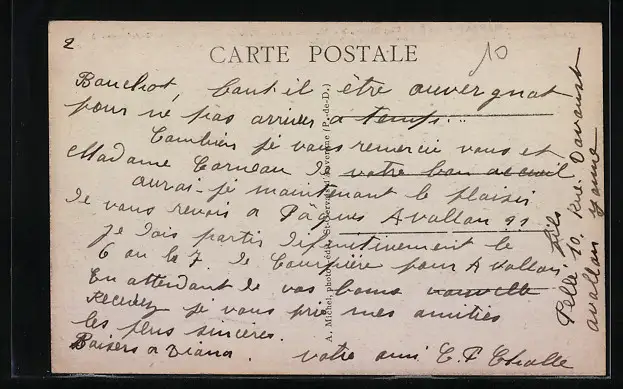 2
CARTE POSTALE
10
Bouchot, faut il être auvergnat
pour ne pas arriver a temps...
Combien je vous remercie vous et
Madame de votre bon accueil
aurai-je maintenant le plaisir
de vous revoir a Pâques Avallon ??
je dois partir définitivement le
6 ou le 7 de Courpière pour Avallon.
En attendant de vos bonnes nouvelle
Recevez je vous prie mes amitiés
les plus sincères.
Baisers a Diana. votre ami C. P
A. Michel, photo-édit. St-Gervais-d'Auvergne (P.-de-D.)
Pelle fils
10, Rue Davoust
avallon Yonne